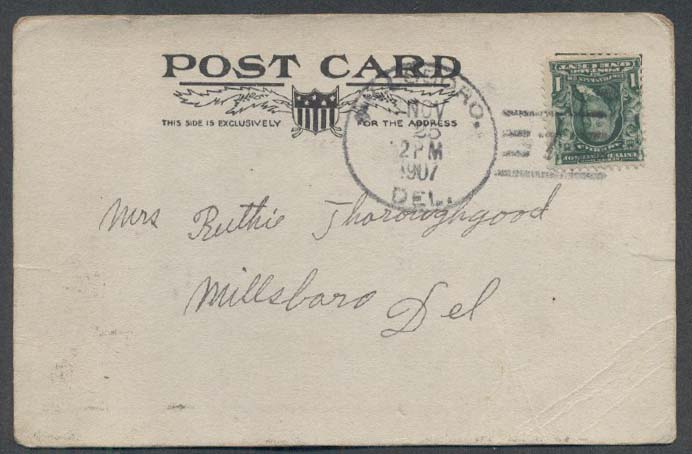 POST CARD
THIS SIDE IS EXCLUSIVELY FOR THE ADDRESS
MILLSBORO.
NOV
25
2 PM
1907
DEL.
1 1
Mrs Ruthie Thoroughgood
Millsboro Del